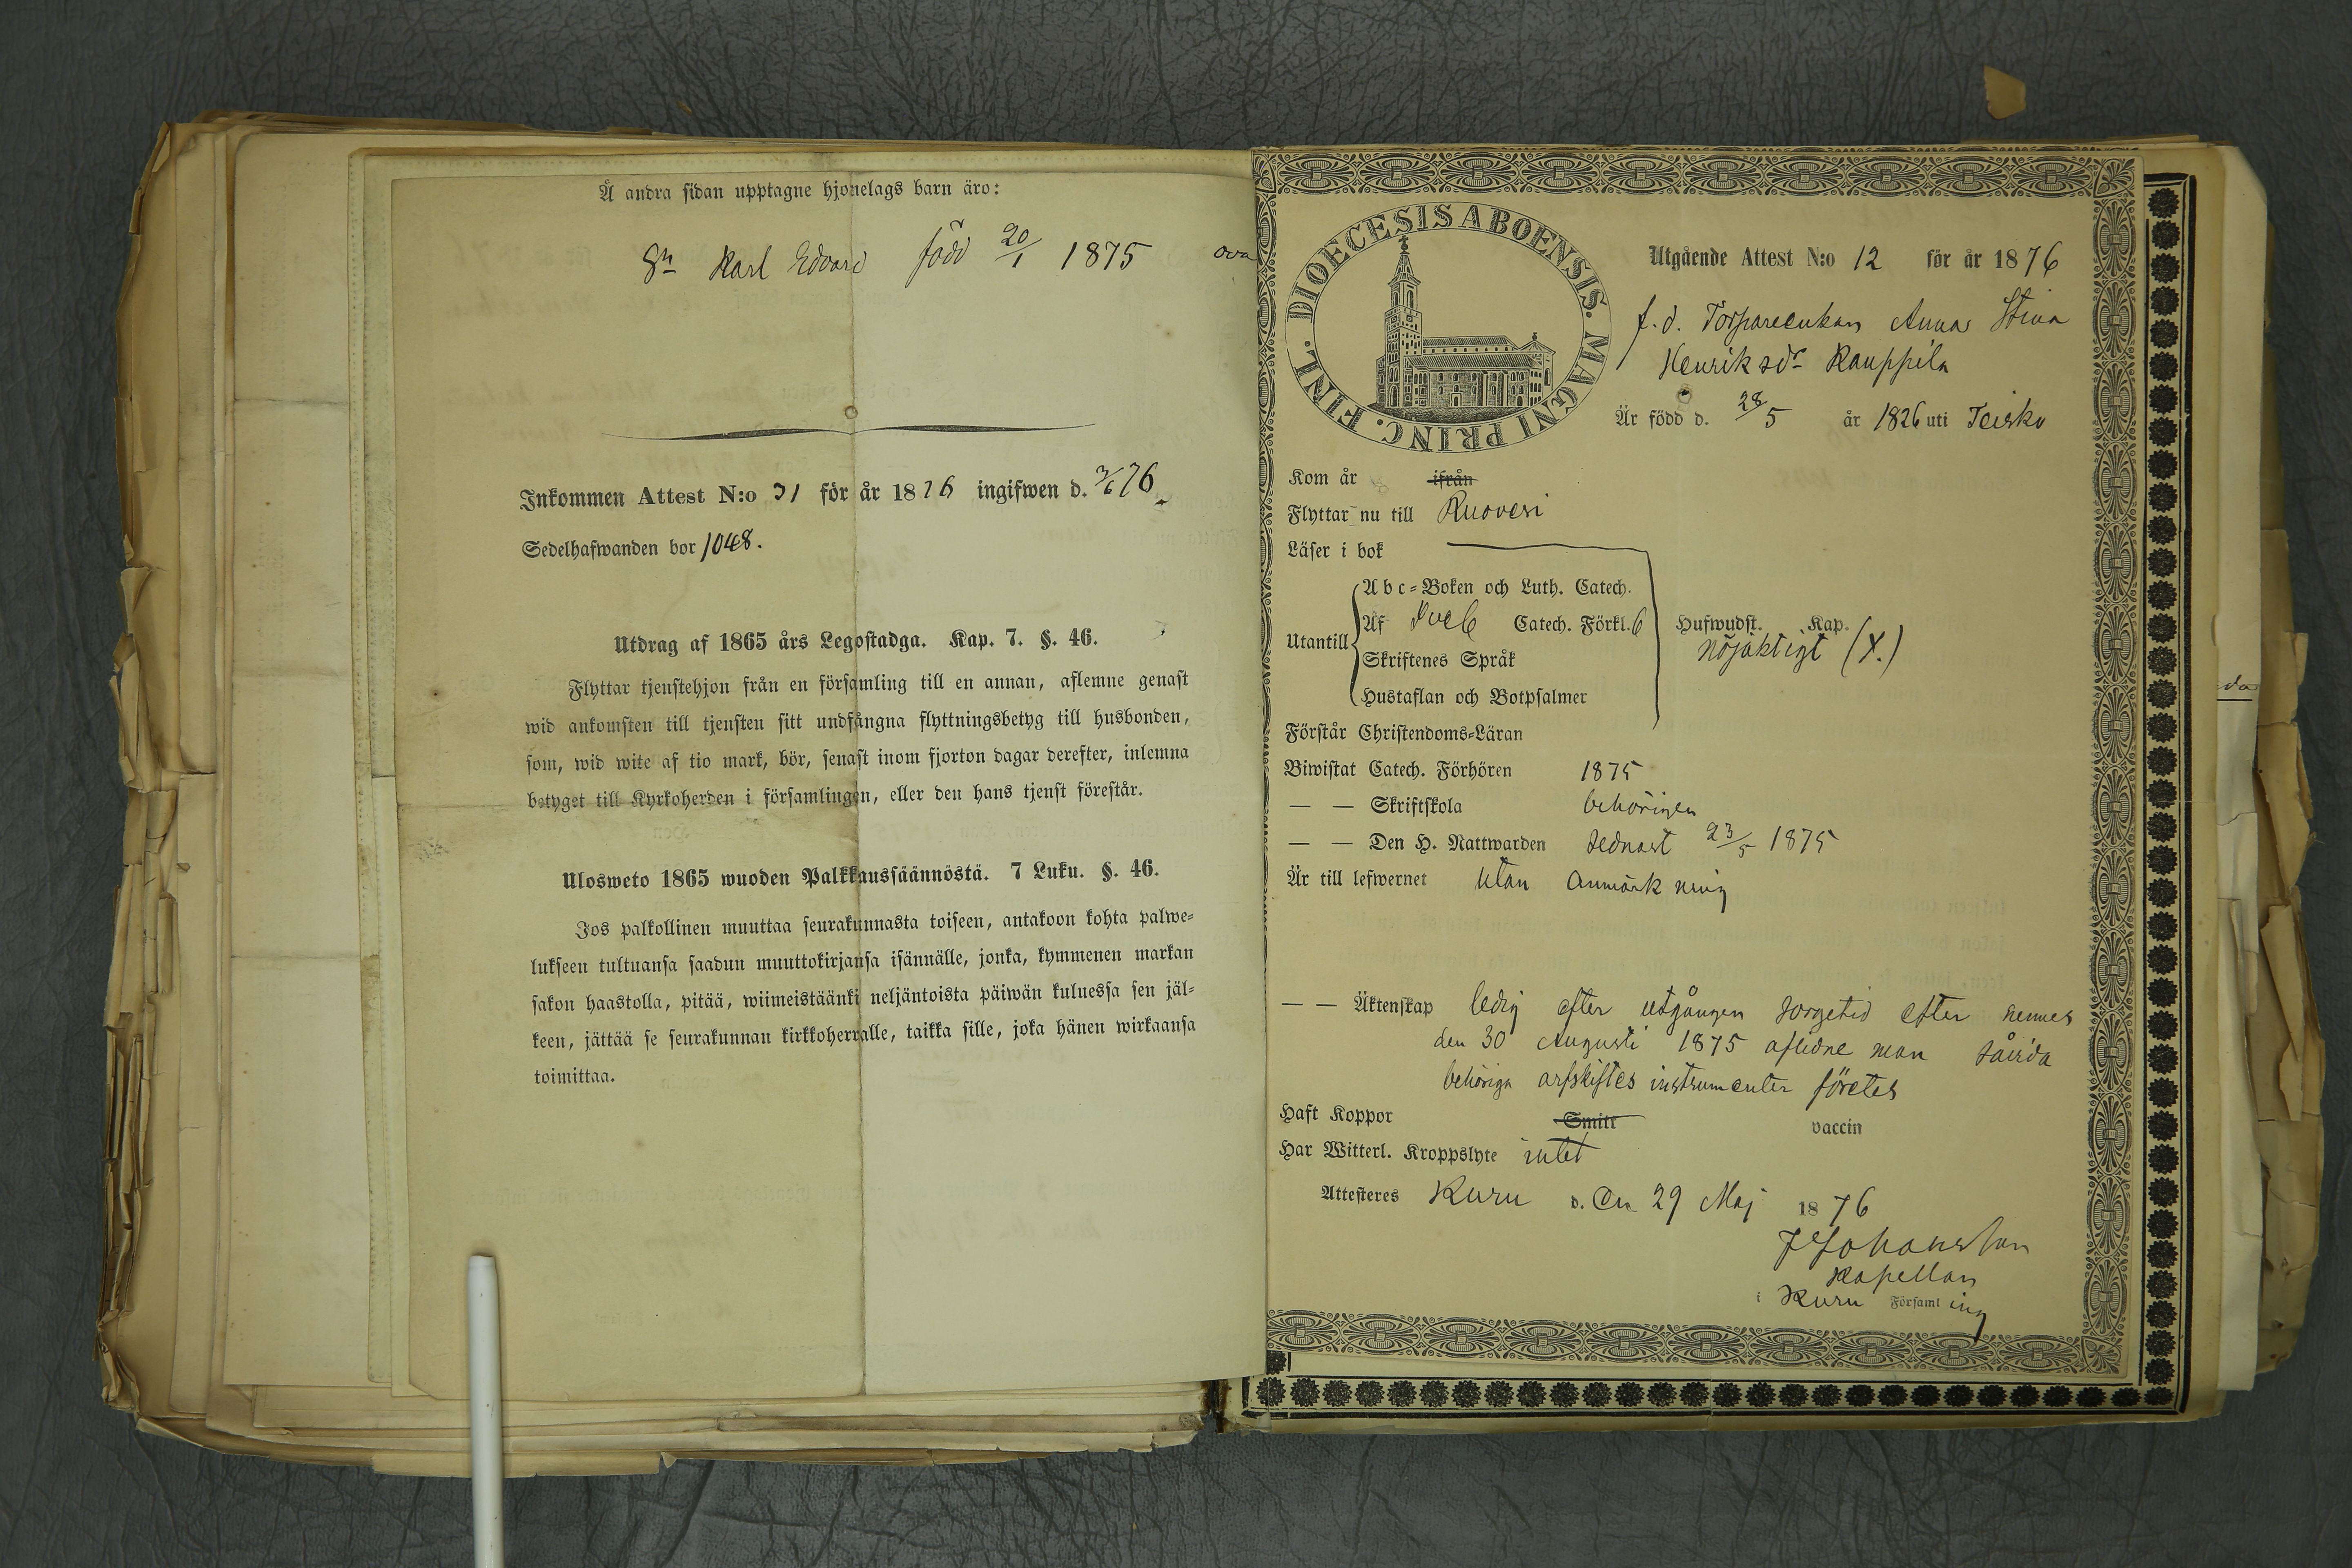 Å andra sidan upptagne hjonelags barn äro:
Sn Karl Edvard född 20/1 1875
Inkommen Attest N:o 31 för år 1876 ingifwen d. 3/6 76.
Sedelhafwanden bor 1048.
Utdrag af 1865 års Legostadga. Kap. 7. §. 46.
Flyttar tjenstehjon från en församling till en annan, aflemne genast
wid ankomsten till tjensten sitt undfångna flyttningsbetyg till husbonden,
som, wid wite af tio mark, bör, senast inom fjorton dagar derefter, inlemna
betyget till Kyrkoherden i församlingen, eller den hans tjenst förestår.
Ulosweto 1865 wuoden Palkkaussäännöstä. 7 Luku. §. 46.
Jos palkollinen muuttaa seurakunnasta toiseen, antakoon kohta palwe=
lukseen tultuansa saadun muuttokirjansa isännälle, jonka, kymmenen markan
sakon haastolla, pitää, wiimeistäänki neljäntoista päiwän kuluessa sen jäl=
keen, jättää se seurakunnan kirkkoherralle, taikka sille, joka hänen wirkaansa
toimittaa.
DIOECESIS ABOENSIS. MAGNI PRINC. FINL.
Utgående Attest N:o 12 för år 1876
f.d. Torpareenkan Anna Stina
Henriksdr Kauppila
Är född d. 28/5 år 1826 uti Teisko
Kom år ifrån
Flyttar nu till Ruovesi
Läser i bok
Abc=Boken och Luth. Catech.
Utantill Af Sveb Catech. Förkl. 6 Hufwudst. Kap.
nöjaktigt (X.)
Skriftenes Språk
Hustaflan och Botpsalmer
Förstår Christendoms=Läran
Biwistat Catech. Förhören 1875
— — Skriftskola behörigen
— — Den H. Nattwarden sednast 23/5 1875
Är till lefwernet utan anmärkning
— — Äktenskap ledig efter utgången sorgetid efter hennes
den 30 Augusti 1875 aflidne man såvida
behöriga arfskiftes instrumenter företes
Haft Koppor Smitt vaccin
Har Witterl. Kroppslyte intet
Attesteres Kuru d. 29 Maj 1876
Johansson
Kapellan
i Kuru Församling